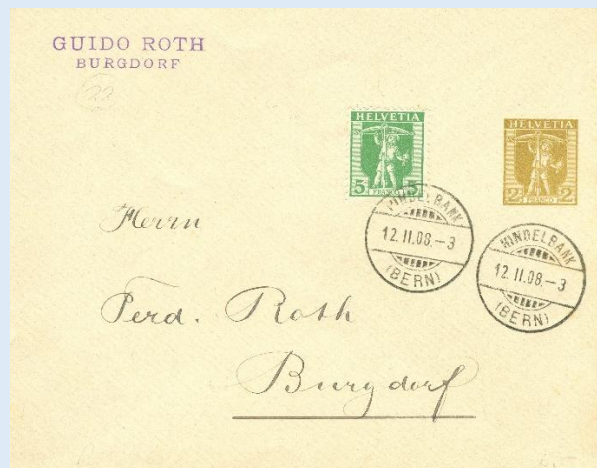 GUIDO ROTH
BURGDORF
22
HELVETIA
5 5
FRANCO
HELVETIA
2 2
FRANCO
HINDELBANK
12.II.08.–3
(BERN)
HINDELBANK
12.II.08.–3
(BERN)
Herrn
Ferd. Roth
Burgdorf